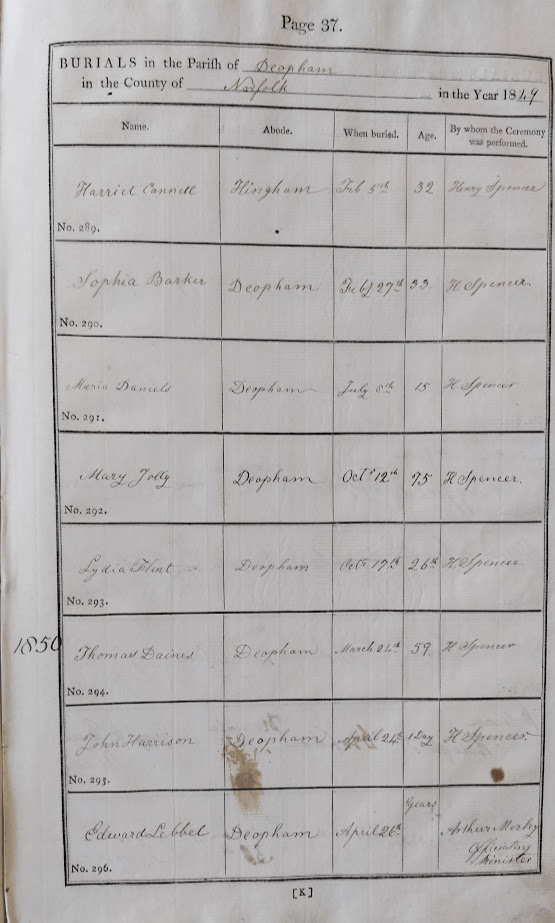 Page 37.
BURIALS in the Parish of Deopham
in the County of Norfolk in the Year 1849
Name. Abode. When buried. Age. By whom the Ceremony was performed.
Harriet Cannell Hingham Feb 5th 32 Henry Spencer
No. 289.
Sophia Barker Deopham Feby 27th 33 H Spencer.
No. 290.
Maria Daniels Deopham July 8th 15 H Spencer
No. 291.
Mary Jolly Deopham Octr 12th 75 H Spencer.
No. 292.
Lydia Flint Deopham Octr 17th 26th H Spencer.
No. 293.
1850
Thomas Daines Deopham March 24th 59 H Spencer
No. 294.
John Harrison Deopham April 24th 1 Day H Spencer
No. 295.
Years
Edward Lebbel Deopham April 26th Arthur
Officiating
Minister
No. 296.
[K]